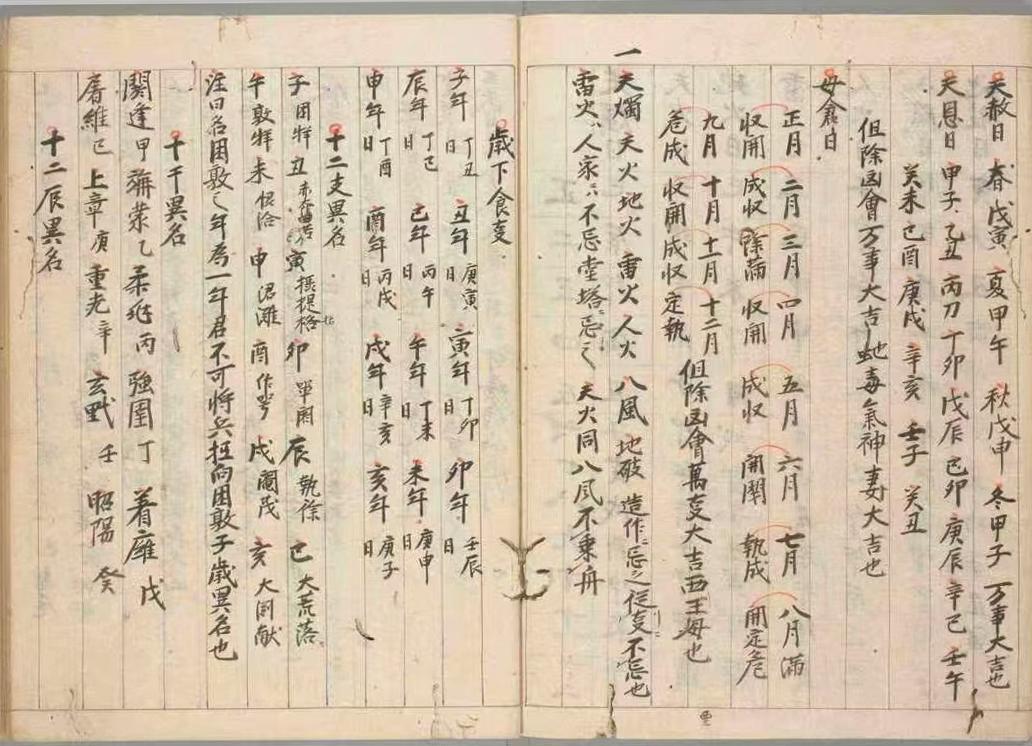 天赦日 春戊寅 夏甲午 秋戊申 冬甲子 万事大吉也
天恩日 甲子 乙丑 丙刀 丁卯 戊辰 己卯 庚辰 辛己 壬午
癸未 己酉 庚戌 辛亥 壬子 癸丑
但除凶會万事大吉虵毒氣神妻大吉也
母倉日
正月 二月 三月 四月 五月 六月 七月 八月満
収開 成収 除満 収開 成収 開閉 執成 開定危
九月 十月 十一月 十二月
危成 収開 成収 定執 但除凶會萬事大吉西王母也
一 天燭 天火 地火 雷火 人火 八風 地破 造作忌之 従事不忌也
雷火 人家 不忌 堂塔 忌之 天火同 八風不乗舟
歳下食事
子年 丁丑日 丑年 庚寅日 寅年 丁卯日 卯年 壬辰日
辰年 丁巳日 己年 丙午日 午年 丁未日 未年 庚申日
申年 丁酉日 酉年 丙戌日 戌年 辛亥日 亥年 庚子日
十二支異名
子 困敦 丑 赤奮若 寅 摂提格 卯 單閼 辰 執徐 巳 大荒落
午 敦牂 未 協洽 申 涒灘 酉 作噩 戌 閹茂 亥 大渕献
注曰名困敦之年為一年君不可将兵抂向困敦子歳異名也
十干異名
閼逢 甲 旃蒙 乙 柔兆 丙 強圉 丁 着雍 戊
屠維 己 上章 庚 重光 辛 玄黓 壬 昭陽 癸
十二辰異名